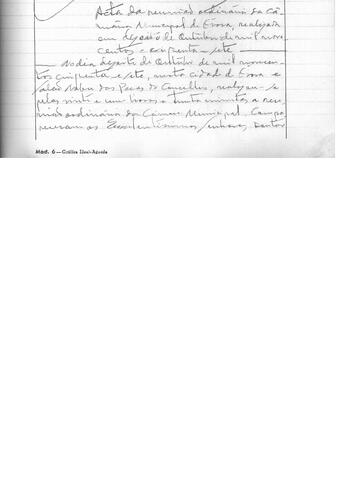 Acta da reunião ordinária da Câ-
mara Municipal de Évora, realizada
em dezoito de Outubro de mil nove-
centos e cinquenta e sete
No dia dezoito de Outubro de mil novecen-
tos cinquenta e sete, nesta cidade de Évora e
Salão Nobre dos Paços do Concelho, realizou-se
pelas vinte e uma horas e trinta minutos a reu-
nião ordinária da Câmara Municipal. Compa-
receram os Excelentíssimos Senhores Doutor
Mod. 6 — Gráfica